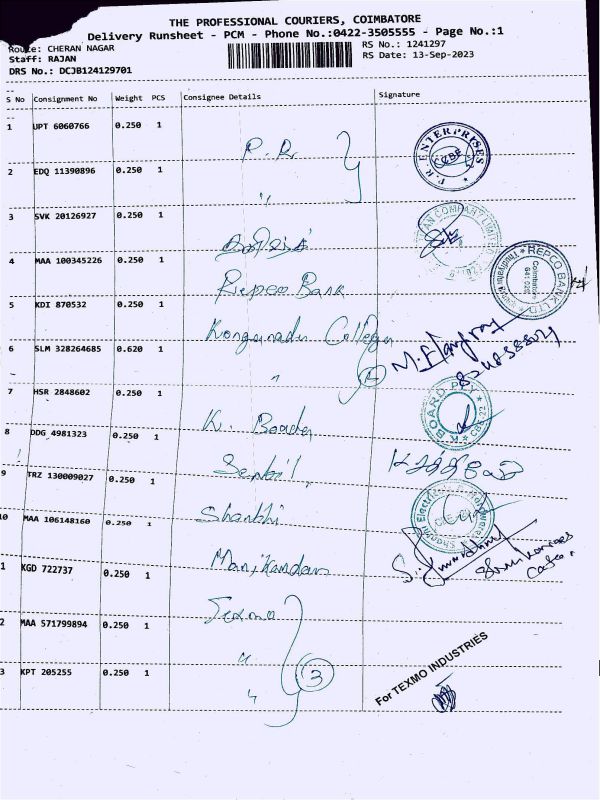 THE PROFESSIONAL COURIERS, COIMBATORE
Delivery Runsheet - PCM - Phone No.:0422-3505555 - Page No.:1
Route: CHERAN NAGAR
RS No.: 1241297
Staff: RAJAN
RS Date: 13-Sep-2023
DRS No.: DCJB124129701
S No Consignment No Weight PCS Consignee Details Signature
1 UPT 6060766 0.250 1 P.R.
P.R. ENTERPRISES CBE
2 EDQ 11390896 0.250 1 "
3 SVK 20126927 0.250 1
COMPANY LIMITED
4 MAA 100345226 0.250 1 Repco Bank
REPCO BANK LTD. Coimbatore
5 KDI 870532 0.250 1 Kongunadu College
6 SLM 328264685 0.620 1 "
7 HSR 2848602 0.250 1 K. Board
K BOARD PLY
8 DDG 4981323 0.250 1 Senthil
9 TRZ 130009027 0.250 1 Shanthi
10 MAA 106148160 0.250 1 Manikandan
1 KGD 722737 0.250 1 Texmo
2 MAA 571799894 0.250 1 "
3 KPT 205255 0.250 1 "
3
For TEXMO INDUSTRIES